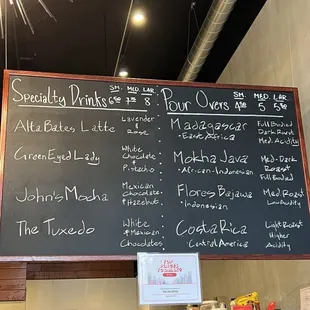 Specialty Drinks SM. MED LAR
6.50 7.50 8
Alta Bates Latte Lavender & Rose
Green Eyed Lady White Chocolate & Pistachio
John's Mocha Mexican Chocolate & Hazelnut
The Tuxedo White & Mexican Chocolates
Pour Overs SM. MED. LAR
4.50 5 5.50
Madagascar Full Bodied
-East Africa Dark Roast
Med. Acidity
Mokha Java Med-Dark
-African-Indonesian Roast
Full Bodied
Flores Bajawa Med. Roast
-Indonesian Low Acidity
Costa Rica Light Roast
-Central America Higher
Acidity